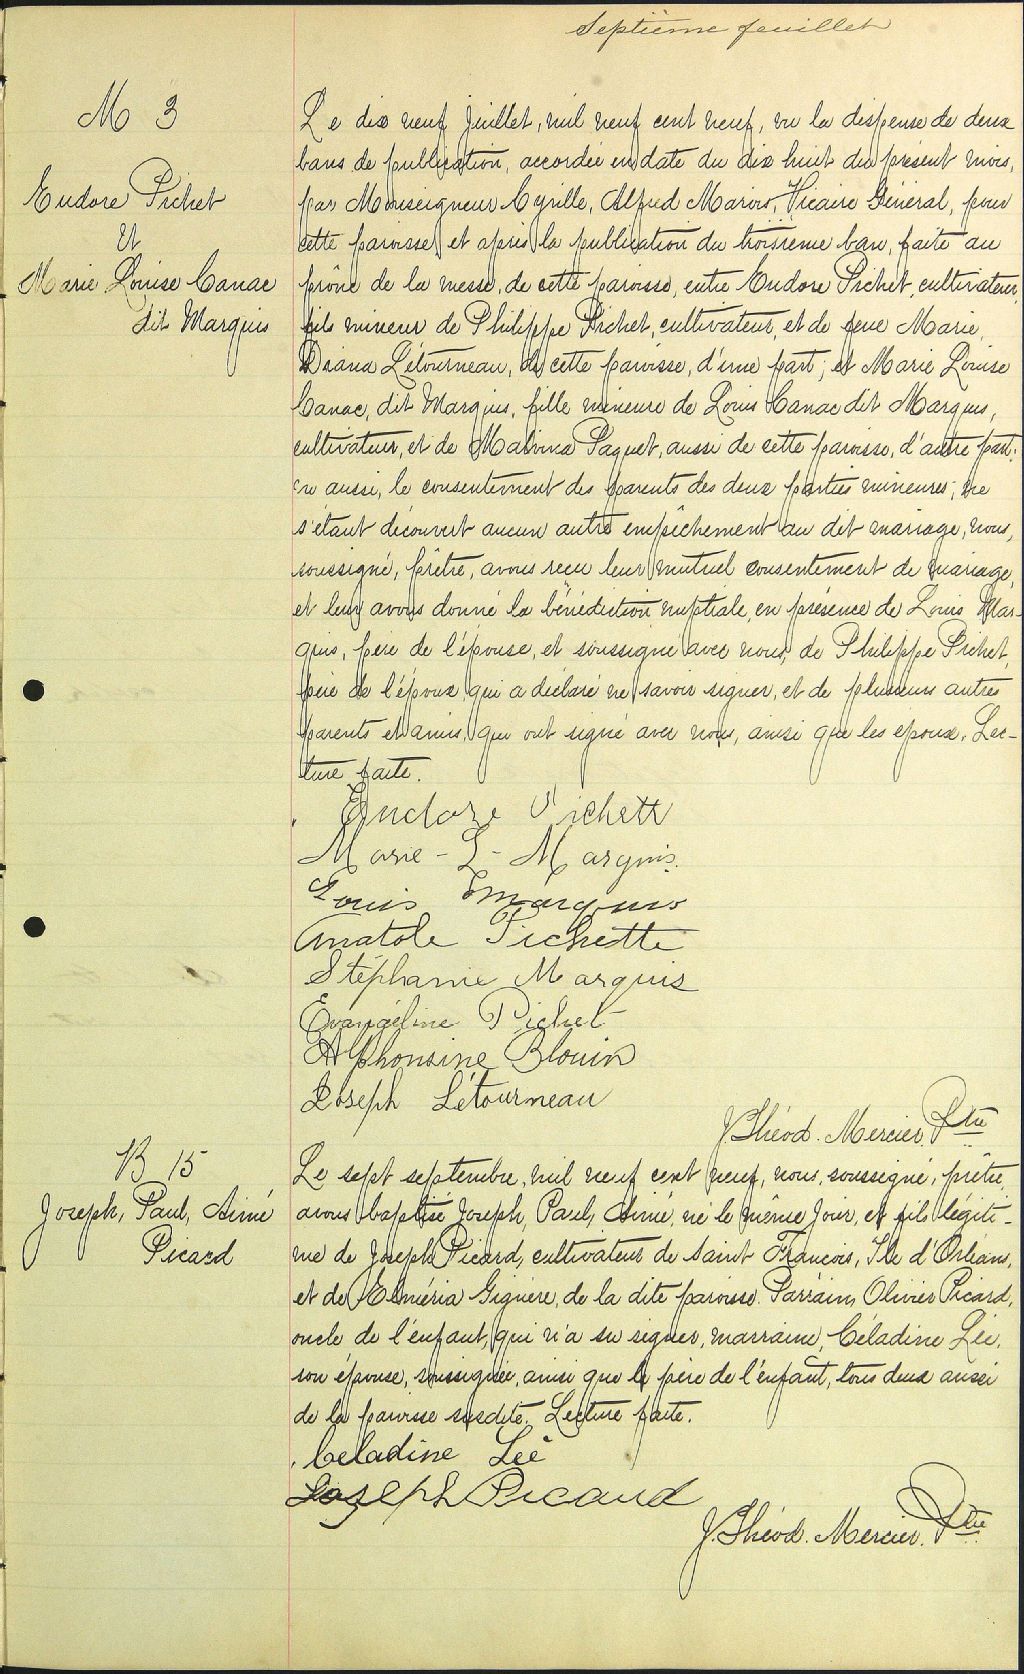 Septième feuillet
M 3
Eudore Pichet
Et
Marie Louise Canac
dit Marquis
Le dix neuf Juillet, mil neuf cent neuf, vu la dispense de deux
bans de publication, accordée en date du dix huit du présent mois,
par Monseigneur Cyrille, Alfred Marois, Vicaire Général, pour
cette paroisse, et après la publication du troisième ban, faite au
prône de la messe, de cette paroisse, entre Eudore Pichet, cultivateur,
fils mineur de Philippe Pichet, cultivateur, et de feue Marie
Diana Létourneau, de cette paroisse, d'une part; et Marie Louise
Canac, dit Marquis, fille mineure de Louis Canac dit Marquis,
cultivateur, et de Malvina Paquet, aussi de cette paroisse, d'autre part:
vu aussi, le consentement des parents des deux parties mineures; ne
s'étant découvert aucun autre empêchement au dit mariage, nous,
soussigné, prêtre, avons reçu leur mutuel consentement de mariage,
et leur avons donné la bénédiction nuptiale, en présence de Louis Mar-
quis, père de l'épouse, et soussigné avec nous, de Philippe Pichet,
père de l'époux qui a déclaré ne savoir signer, et de plusieurs autres
parents et amis, qui ont signé avec nous, ainsi que les époux. Lec-
ture faite.
Eudore Pichett
Marie-L-Marquis.
Louis Marquis
Anatole Pichette
Stéphanie Marquis
Evangéline Pichet
Alphonsine Blouin
Joseph Létourneau
J. Théod. Mercier, Ptre
B 15
Joseph, Paul, Aimé
Picard
Le sept septembre, mil neuf cent neuf, nous, soussigné, prêtre,
avons baptisé Joseph, Paul, Aimé, né le même jour, et fils légiti-
me de Joseph Picard, cultivateur de Saint François, Ile d'Orléans,
et de Elméria Giguère, de la dite paroisse. Parrain, Olivier Picard,
oncle de l'enfant, qui n'a su signer, marraine, Céladine Lée,
son épouse, soussignée, ainsi que le père de l'enfant, tous deux aussi
de la paroisse susdite. Lecture faite.
Celadine Leé
Joseph Picard
J. Théod. Mercier. Ptre